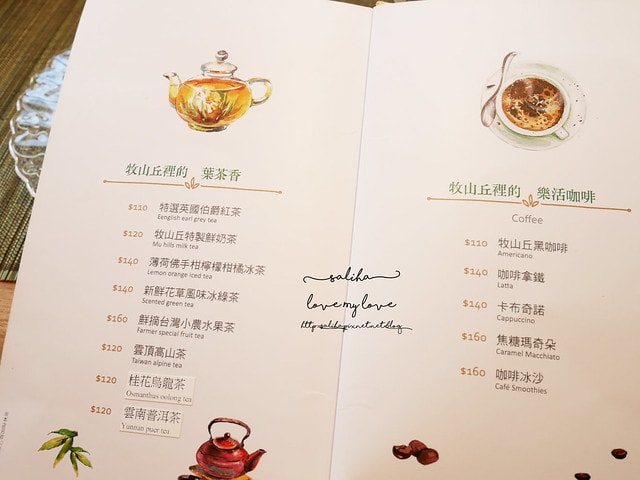 牧山丘裡的 葉茶香
$110 特選英國伯爵紅茶
Eenglish earl grey tea
$120 牧山丘特製鮮奶茶
Mu hills milk tea
$140 薄荷佛手柑檸檬柑橘冰茶
Lemon orange iced tea
$140 新鮮花草風味冰綠茶
Scented green tea
$160 鮮摘台灣小農水果茶
Farmer special fruit tea
$120 雲頂高山茶
Taiwan alpine tea
$120 桂花烏龍茶
Osmanthus oolong tea
$120 雲南普洱茶
Yunnan puer tea
saliha
love my love
http:saliha.pixnet.net.blog
牧山丘裡的 樂活咖啡
Coffee
$110 牧山丘黑咖啡
Americano
$140 咖啡拿鐵
Latta
$140 卡布奇諾
Cappuccino
$160 焦糖瑪奇朵
Caramel Macchiato
$160 咖啡冰沙
Café Smoothies